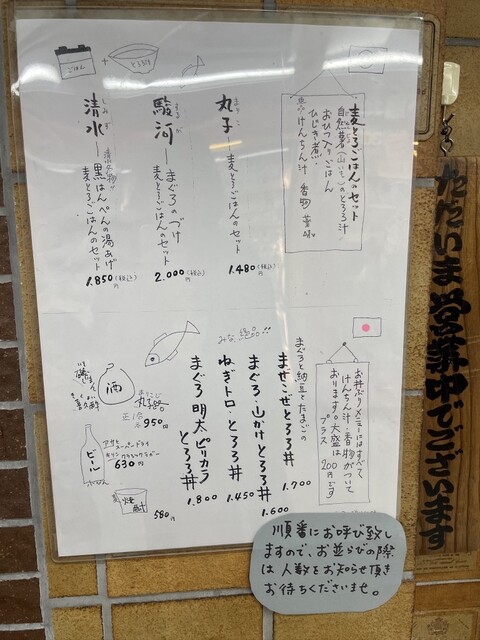 麦とろごはんのセット
自然薯(山いも)のとろろ汁
おひつ入りごはん
ひじき煮
けんちん汁 香物 薬味
まりこ
丸子―麦とろごはんのセット
1.480円(税込)
するが
駿河―まぐろのづけ
麦とろごはんのセット
2.000円(税込)
しみず
清水―黒はんぺんの湯あげ
麦とろごはんのセット
1.850円(税込)
ごはん
+
とろろ汁
お丼ぶりメニューにはすべて
けんちん汁・香物がついて
おります。大盛は
プラス200円です
みな絶品!!
まぐろと納豆とたまごの
まぜこぜとろろ丼
1.700
まぐろ・山かけとろろ丼
1.600
ねぎトロ・とろろ丼
1.450
まぐろ明太ピリカラ
とろろ丼
1.800
酒
磯自まん
喜久酔
正一合
950円
ビール
アサヒスーパードライ
キリンクラシックラガー
630円
焼酎
580円
順番にお呼び致し
ますので、お並らびの際
は人数をお知らせ頂き
お待ちくださいませ。
ただいま営業中でございます